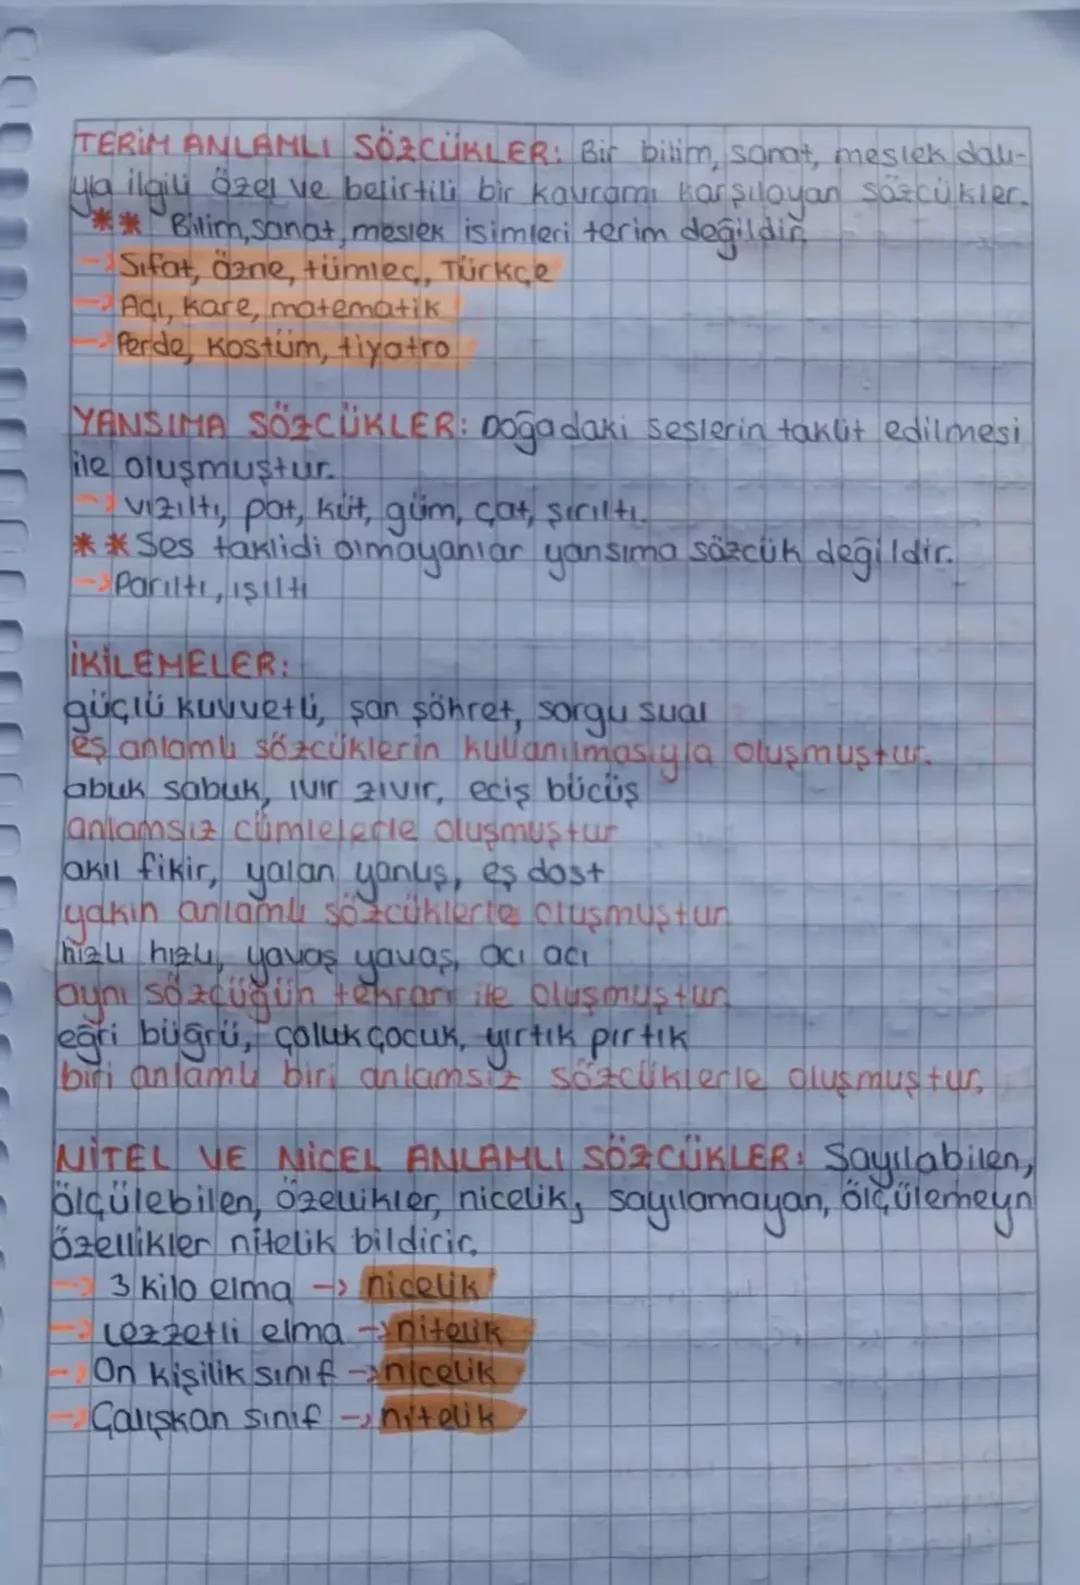 TERİM ANLAMLI SÖZCÜKLER: Bir bilim, sanat, meslek dalı-
yla ilgili özel ve belirtili bir kavramı karşılayan sözcükler.
** Bilim, sanat, meslek isimleri terim değildir.
→ Sıfat, özne, tümleç, Türkçe
→ Açı, kare, matematik
→ Perde, kostüm, tiyatro
YANSIMA SÖZCÜKLER: Doğadaki seslerin taklit edilmesi
ile oluşmuştur.
→ vızıltı, pat, küt, güm, çat, şırıltı.
** Ses taklidi olmayanlar yansıma sözcük değildir.
→ Parıltı, ışıltı
İKİLEMELER:
güçlü kuvvetli, şan şöhret, sorgu sual
eş anlamlı sözcüklerin kullanılmasıyla oluşmuştur.
abuk sabuk, ıvır zıvır, eciş bücüş
anlamsız cümlelerle oluşmuştur
akıl fikir, yalan yanlış, eş dost
yakın anlamlı sözcüklerle oluşmuştur.
hızlı hızlı, yavaş yavaş, acı acı
aynı sözcüğün tekrarı ile oluşmuştur.
eğri büğrü, çoluk çocuk, yırtık pırtık
biri anlamlı biri anlamsız sözcüklerle oluşmuştur.
NİTEL VE NİCEL ANLAMLI SÖZCÜKLER: Sayılabilen,
ölçülebilen, özellikler, nicelik, sayılamayan, ölçülemeyn
özellikler nitelik bildirir.
→ 3 kilo elma → nicelik
→ Lezzetli elma → nitelik
→ On kişilik sınıf → nicelik
→ Çalışkan sınıf → nitelik